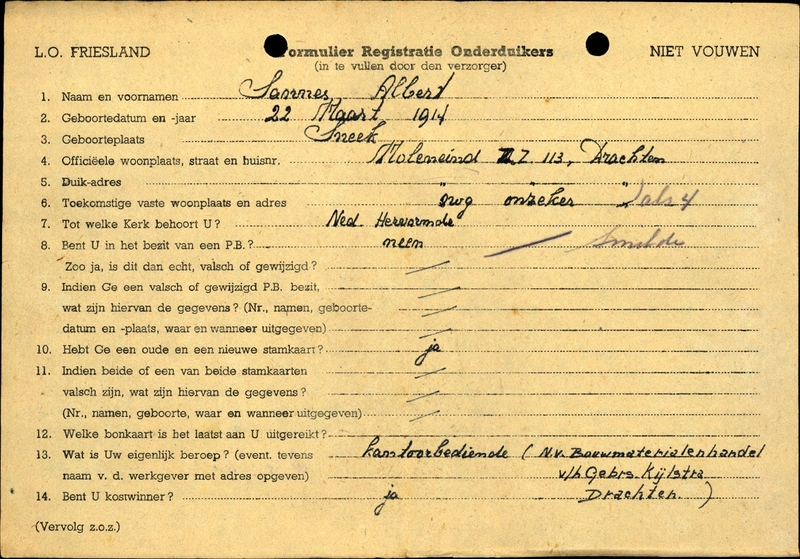 L.O. FRIESLAND Formulier Registratie Onderduikers NIET VOUWEN
(in te vullen door den verzorger)
1. Naam en voornamen Sannes, Albert
2. Geboortedatum en -jaar 22 Maart 1914
3. Geboorteplaats Sneek
4. Officiëele woonplaats, straat en huisnr. Moleneind Z.Z. 113, Drachten
5. Duik-adres " " "
6. Toekomstige vaste woonplaats en adres nog onzeker als 4
7. Tot welke Kerk behoort U? Ned. Hervormde
8. Bent U in het bezit van een P.B.? neen Smilde
Zoo ja, is dit dan echt, valsch of gewijzigd?
9. Indien Ge een valsch of gewijzigd P.B. bezit,
wat zijn hiervan de gegevens? (Nr., namen, geboorte-
datum en -plaats, waar en wanneer uitgegeven)
10. Hebt Ge een oude en een nieuwe stamkaart? ja
11. Indien beide of een van beide stamkaarten
valsch zijn, wat zijn hiervan de gegevens?
(Nr., namen, geboorte, waar en wanneer uitgegeven)
12. Welke bonkaart is het laatst aan U uitgereikt?
13. Wat is Uw eigenlijk beroep? (event. tevens kantoorbediende (N.v. Bouwmaterialenhandel
naam v. d. werkgever met adres opgeven) v/h Gebrs. Kijlstra
14. Bent U kostwinner? ja Drachten.)
(Vervolg z.o.z.)